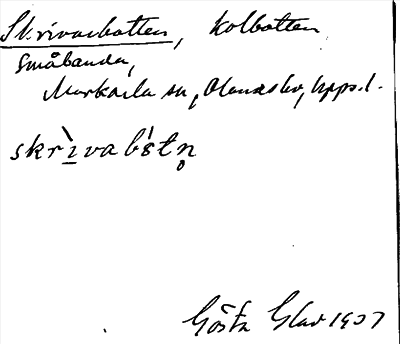 Skrivarbotten, Kolbotten
Småbanda,
Markarla sn, Olandsbo, Upps. l.
skrìvabśtn̥
Gösta Glav 1907